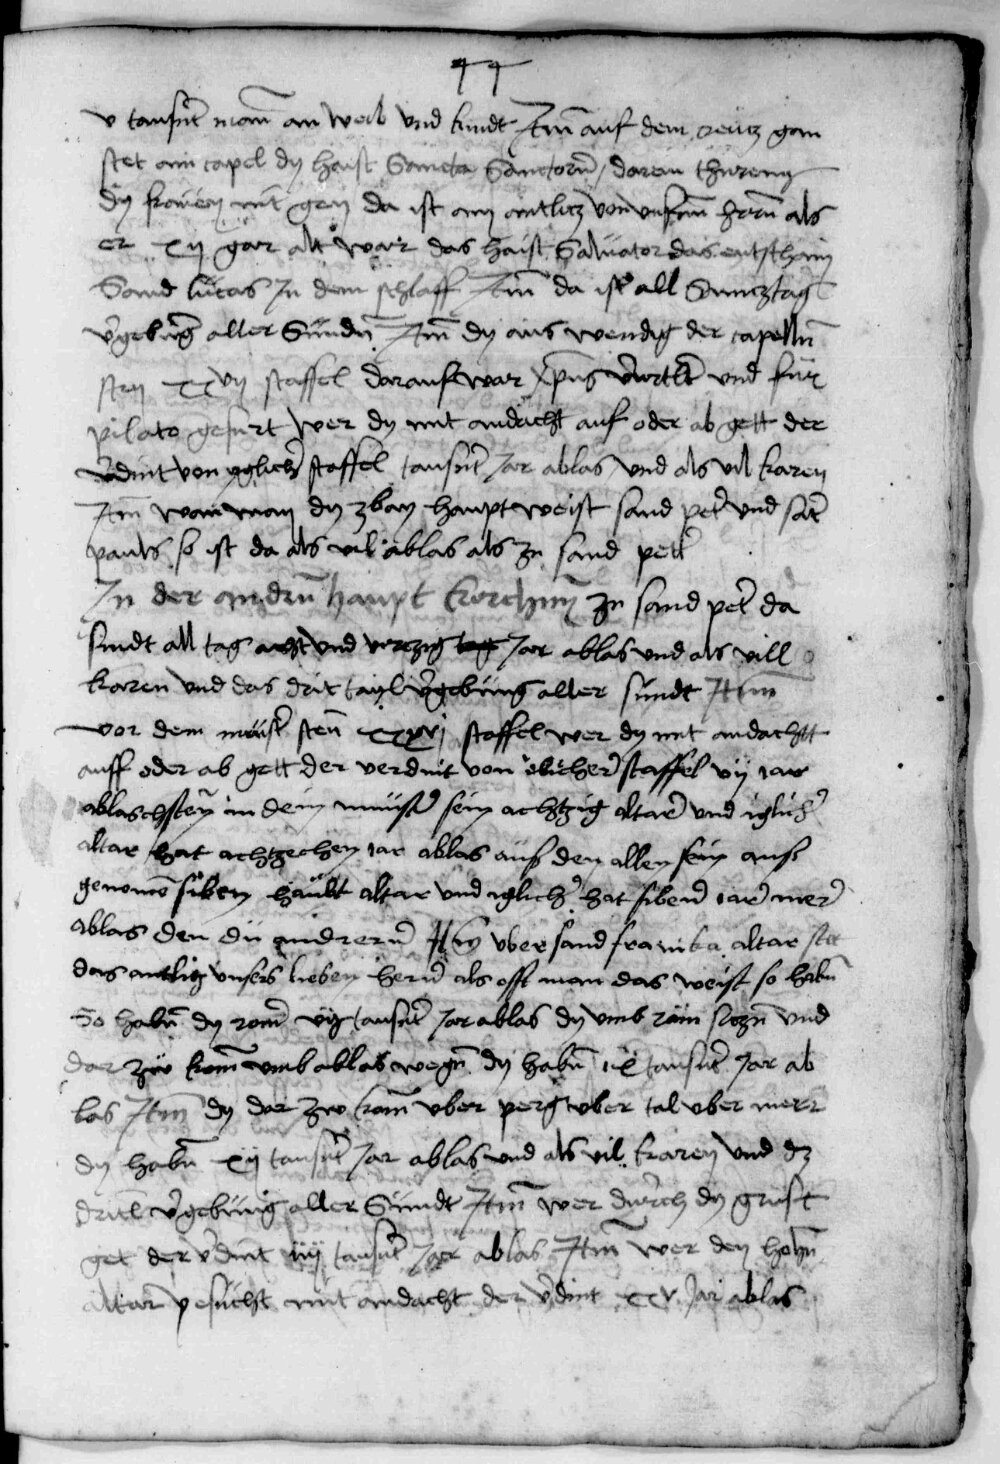 44
v tausent man an weib und kindt Itm auf dem creucz gan
stet ain capel dy haist Sancta Sanctorum / darein thuren
dy frauen nit gen da ist ain antlicz von unserm herrn als
er xij gar alt war das haist Salvator das entschain
Sand lucas In dem schlaff Itm da ist all Suncztag
vgebung aller Sundn Itm dy aus wendig der capelln
sten xxvij staffel darauf war xpus vortlt und fur
pilato gefurt wer dy mit andacht auf oder ab gett der
vdint von yglicher staffel tausent Jar ablas und als vil karen
Itm wan man dy zbay haupt weist sand peter und sant
pauls so ist da als vil ablas als zu sand peter
In der andrn haupt korchn zu sand peter da
sindt all tag acht und virczig Jar ablas und als vill
karen und das drit tayl vgebung aller sundt Itm
vor dem munster sten xxxvj staffel wer dy mit andachtt
auff oder ab gett der verdint von iblicher staffel vij iar
ablas in dem munster sein achtzig altare und iglicher
altar hat achtzechen iar ablas aus den allen sein aus
genomen siben haubt altar und iglicher hat siben iare mere
ablas den dii andreren Itm uber sand franika altar stet
das antlitz unsers lieben heren als offt man das weist so habn
So habn dy romer vij tausent Jar ablas dy umb ram siczn und
dar zw komen umb ablas wegn dy habn ix tausent Jar ab
las Itm dy dar zw komen uber perg uber tal uber merr
dy habn xij tausent Jar ablas und als vil karen und dz
dritl vgebung aller Sundt Itm wer durch dy gruft
get der vdint iiij tausent Jar ablas Itm wer den hohn
altar pesucht mit andacht der vdint xxv Jar ablas